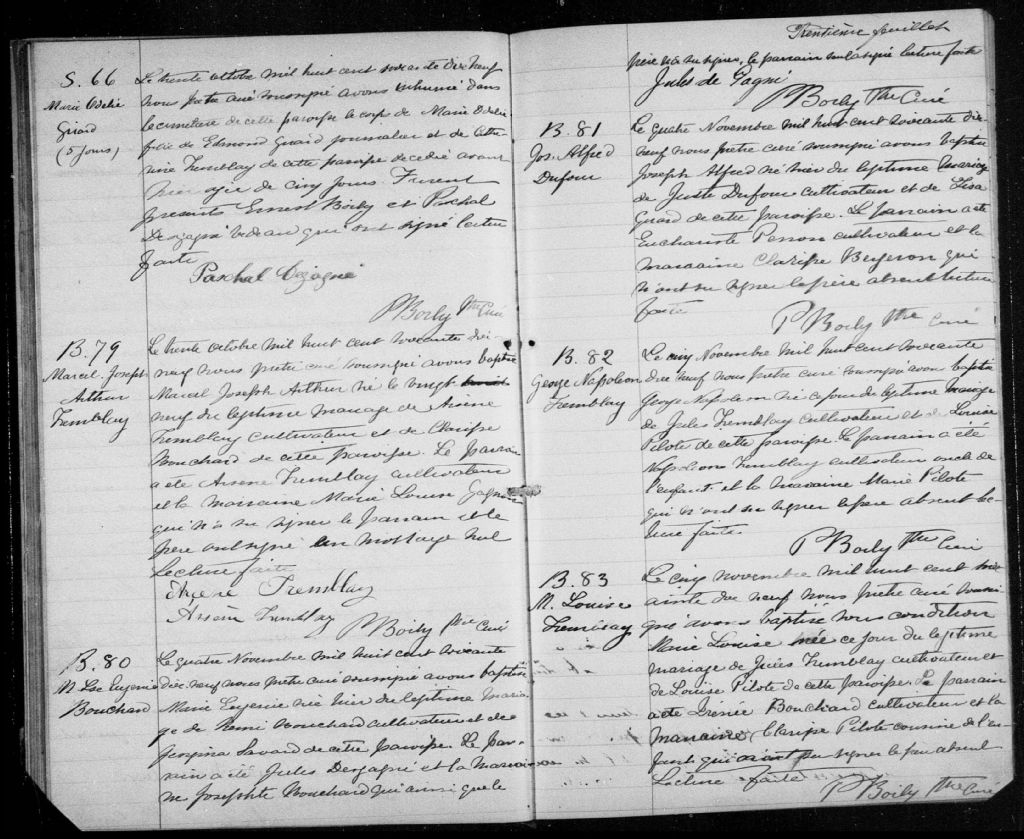 S. 66
Marie Odelie
Girard
(5 jours)
Le trente octobre mil huit cent soixante dix neuf
nous prêtre curé soussigné avons inhumé dans
le cimetière de cette paroisse le corps de Marie Odelie
fille de Edmond Girard journalier et de Cathe-
rine Tremblay de cette paroisse décédée avant
hier agée de cinq jours. Furent
présents Ernest Boily et Paschal
Dezagné bedeau qui ont signé lecture
faite
Paschal Dezagné
P Boily Ptre Curé
B. 79
Marcel Joseph
Arthur
Tremblay
Le trente octobre mil huit cent soixante dix-
neuf nous prêtre curé soussigné avons baptisé
Marcel Joseph Arthur né le vingt
neuf du légitime mariage de Arsène
Tremblay cultivateur et de Clarisse
Bouchard de cette paroisse. Le parrain
a été Arsène Tremblay cultivateur
et la marraine Marie Louise Gagnon
qui n'a su signer le parrain et le
père ont signé un mot rayé nul
Lecture faite
Arsène Tremblay
Arsène Tremblay
P Boily Ptre Curé
B. 80
M. Lse Eugenie
Bouchard
Le quatre Novembre mil huit cent soixante
dix-neuf nous prêtre curé soussigné avons baptisé
Marie Eugenie née hier du légitime maria-
ge de Remi Bouchard cultivateur et de
Georgina Savard de cette paroisse. Le par-
rain a été Jules Dezgagné et la marrai-
ne Josephte Bouchard qui ainsi que le
Trentième feuillet
père n'a su signer, le parrain a signé lecture faite
Jules de Gagné
P Boily Ptre Curé
B. 81
Jos. Alfred
Dufour
Le quatre Novembre mil huit cent soixante dix-
neuf nous prêtre curé soussigné avons baptisé
Joseph Alfred né hier du légitime mariage
de Juste Dufour cultivateur et de Lisa
Girard de cette paroisse. Le parrain a été
Euchariste Perron cultivateur et la
marraine Clarisse Bergeron qui
n'ont su signer le père absent lecture
faite
P Boily Ptre Curé
B. 82
George Napoleon
Tremblay
Le cinq Novembre mil huit cent soixante
dix neuf nous prêtre curé soussigné avons baptisé
George Napoleon né ce jour du légitime mariage
de Jules Tremblay cultivateur et de Louise
Pilote de cette paroisse. Le parrain a été
Napoléon Tremblay cultivateur oncle de
l'enfant et la marraine Marie Pilote
qui n'ont su signer le père absent lec-
ture faite.
P Boily Ptre Curé
B. 83
M. Louise
Tremblay
Le cinq novembre mil huit cent soix-
ainte dix neuf nous prêtre curé soussi-
gné avons baptisé sous condition
Marie Louise née ce jour du légitime
mariage de Jules Tremblay cultivateur et
de Louise Pilote de cette paroisse. Le parrain
a été Irénée Bouchard cultivateur et la
marraine Clarisse Pilote cousine de l'en-
fant qui n'ont pu signer le père absent
Lecture faite
P Boily Ptre Curé